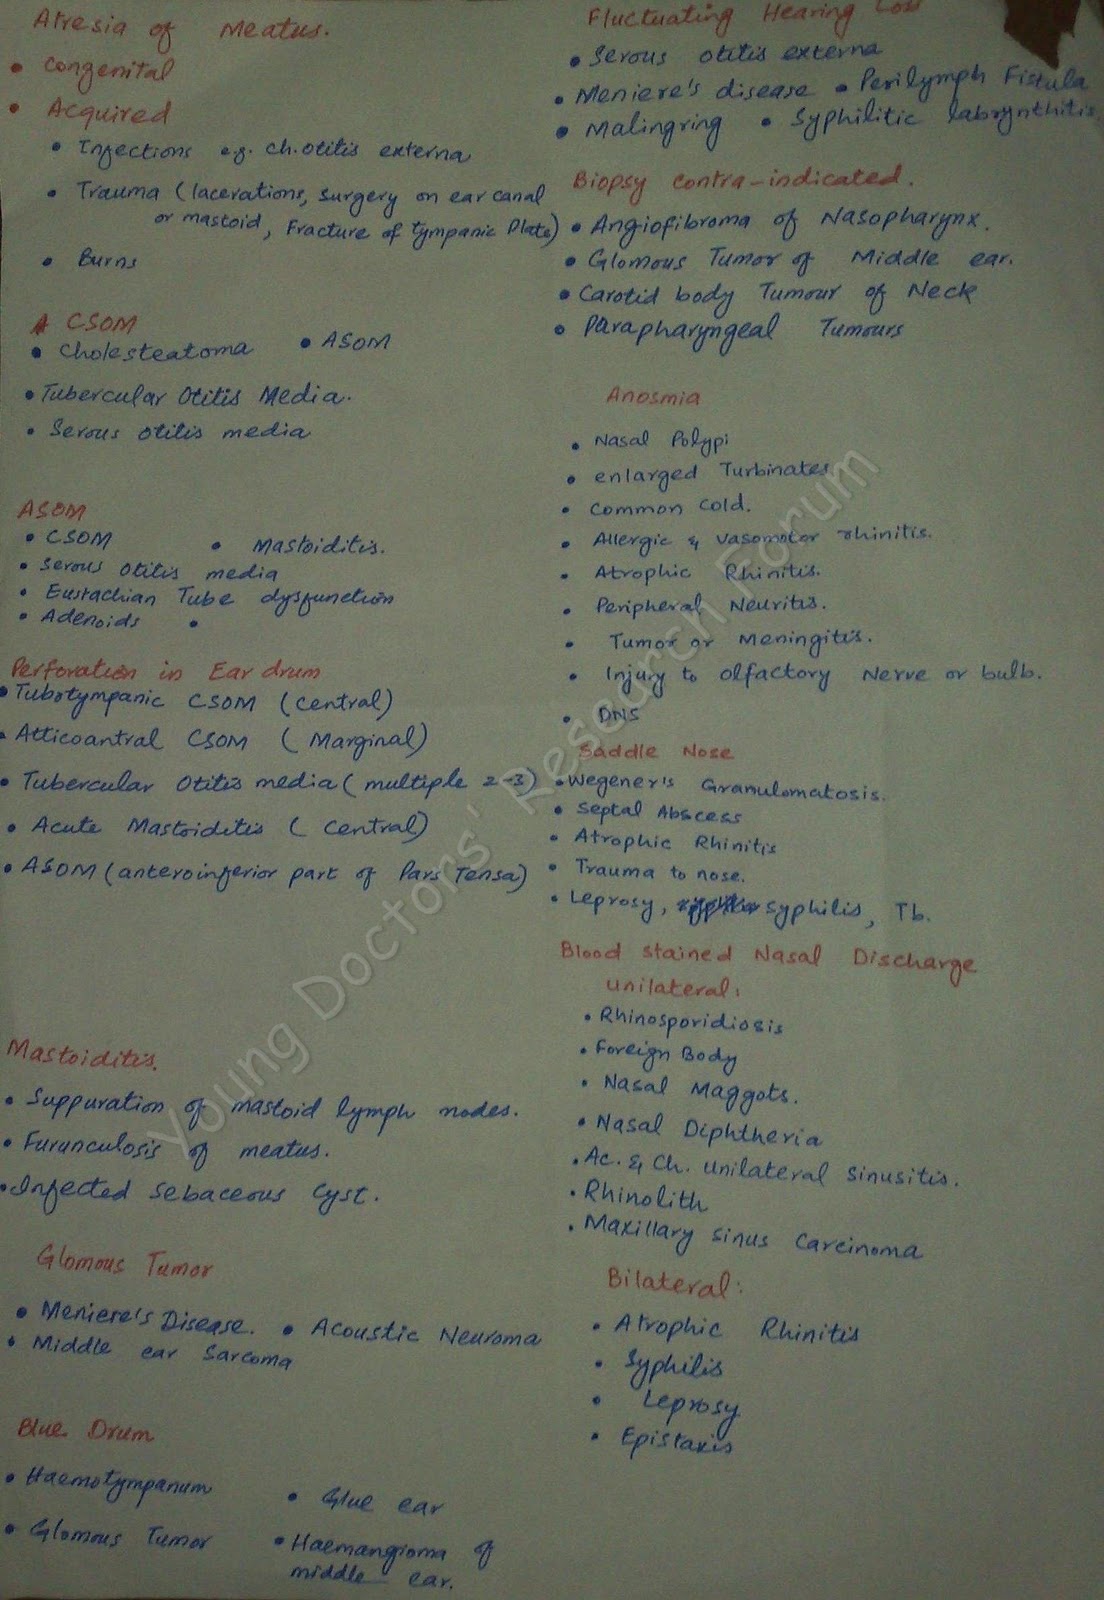 Atresia of Meatus.
• congenital
• Acquired
• Infections e.g. ch. otitis externa
• Trauma (lacerations, surgery on ear canal
or mastoid, Fracture of Tympanic Plate)
• Burns
CSOM
• Cholesteatoma • ASOM
• Tubercular Otitis Media.
• Serous otitis media
ASOM
• CSOM • Mastoiditis.
• Serous Otitis media
• Eustachian Tube dysfunction
• Adenoids •
Perforation in Ear drum
• Tubotympanic CSOM (central)
• Atticoantral CSOM (Marginal)
• Tubercular Otitis media (multiple 2-3)
• Acute Mastoiditis (central)
• ASOM (anteroinferior part of Pars Tensa)
Mastoiditis.
• Suppuration of mastoid lymph nodes.
• Furunculosis of meatus.
• Infected sebaceous cyst.
Glomous Tumor
• Meniere's Disease. • Acoustic Neuroma
• Middle ear Sarcoma
Blue Drum
• Haemotympanum • Glue ear
• Glomous Tumor • Haemangioma of
middle ear.
Fluctuating Hearing Loss
• Serous otitis externa
• Meniere's disease • Perilymph Fistula
• Malingring • Syphilitic labrynthitis
Biopsy contra-indicated.
• Angiofibroma of Nasopharynx.
• Glomous Tumor of Middle ear.
• Carotid body Tumour of Neck
• Parapharyngeal Tumours
Anosmia
• Nasal Polypi
• enlarged Turbinates
• Common cold.
• Allergic & vasomotor rhinitis.
• Atrophic Rhinitis.
• Peripheral Neuritis.
• Tumor or Meningitis.
• Injury to olfactory Nerve or bulb.
• DNS
Saddle Nose
• Wegener's Granulomatosis.
• Septal Abscess
• Atrophic Rhinitis
• Trauma to nose.
• Leprosy, syphilis, Tb.
Blood stained Nasal Discharge
Unilateral:
• Rhinosporidiosis
• Foreign Body
• Nasal Maggots.
• Nasal Diphtheria
• Ac. & Ch. unilateral sinusitis.
• Rhinolith
• Maxillary sinus carcinoma
Bilateral:
• Atrophic Rhinitis
• Syphilis
• Leprosy
• Epistaxis
Young Doctors' Research Forum